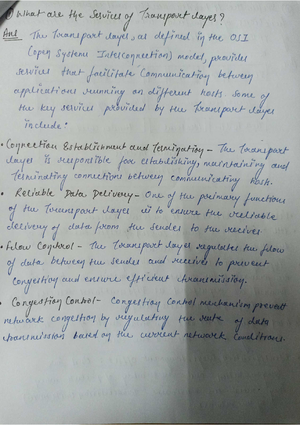 ① What are the Services of Transport layer?
Ans The Transport layer, as defined in the OSI
(open Systems Interconnection) model, provides
services that facilitate Communication between
applications running on different hosts some of
the key services provided by the Transport layer
include:
• Connection Establishment and Termination - The Transport
layer is responsible for establishing, maintaining and
terminating connections between communicating host.
• Reliable Data Delivery - One of the primary functions
of the Transport layer is to ensure the reliable
delivery of data from the sender to the receiver
• Flow Control - The Transport layer regulates the flow
of data between the sender and receiver to prevent
Congestion and ensure efficient transmission.
• Congestion Control - Congestion Control mechanism prevent
network congestion by regulating the rate of data
transmission based on the current network conditions.